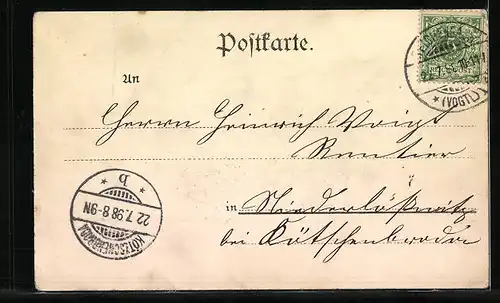 Postkarte.
An
Herrn Heinrich Voigt
Rentier
in Niederlößnitz
bei Kötschenbroda
KÖTZSCHENBRODA
22.7.98.8-9N
* b *
(VOGTL)